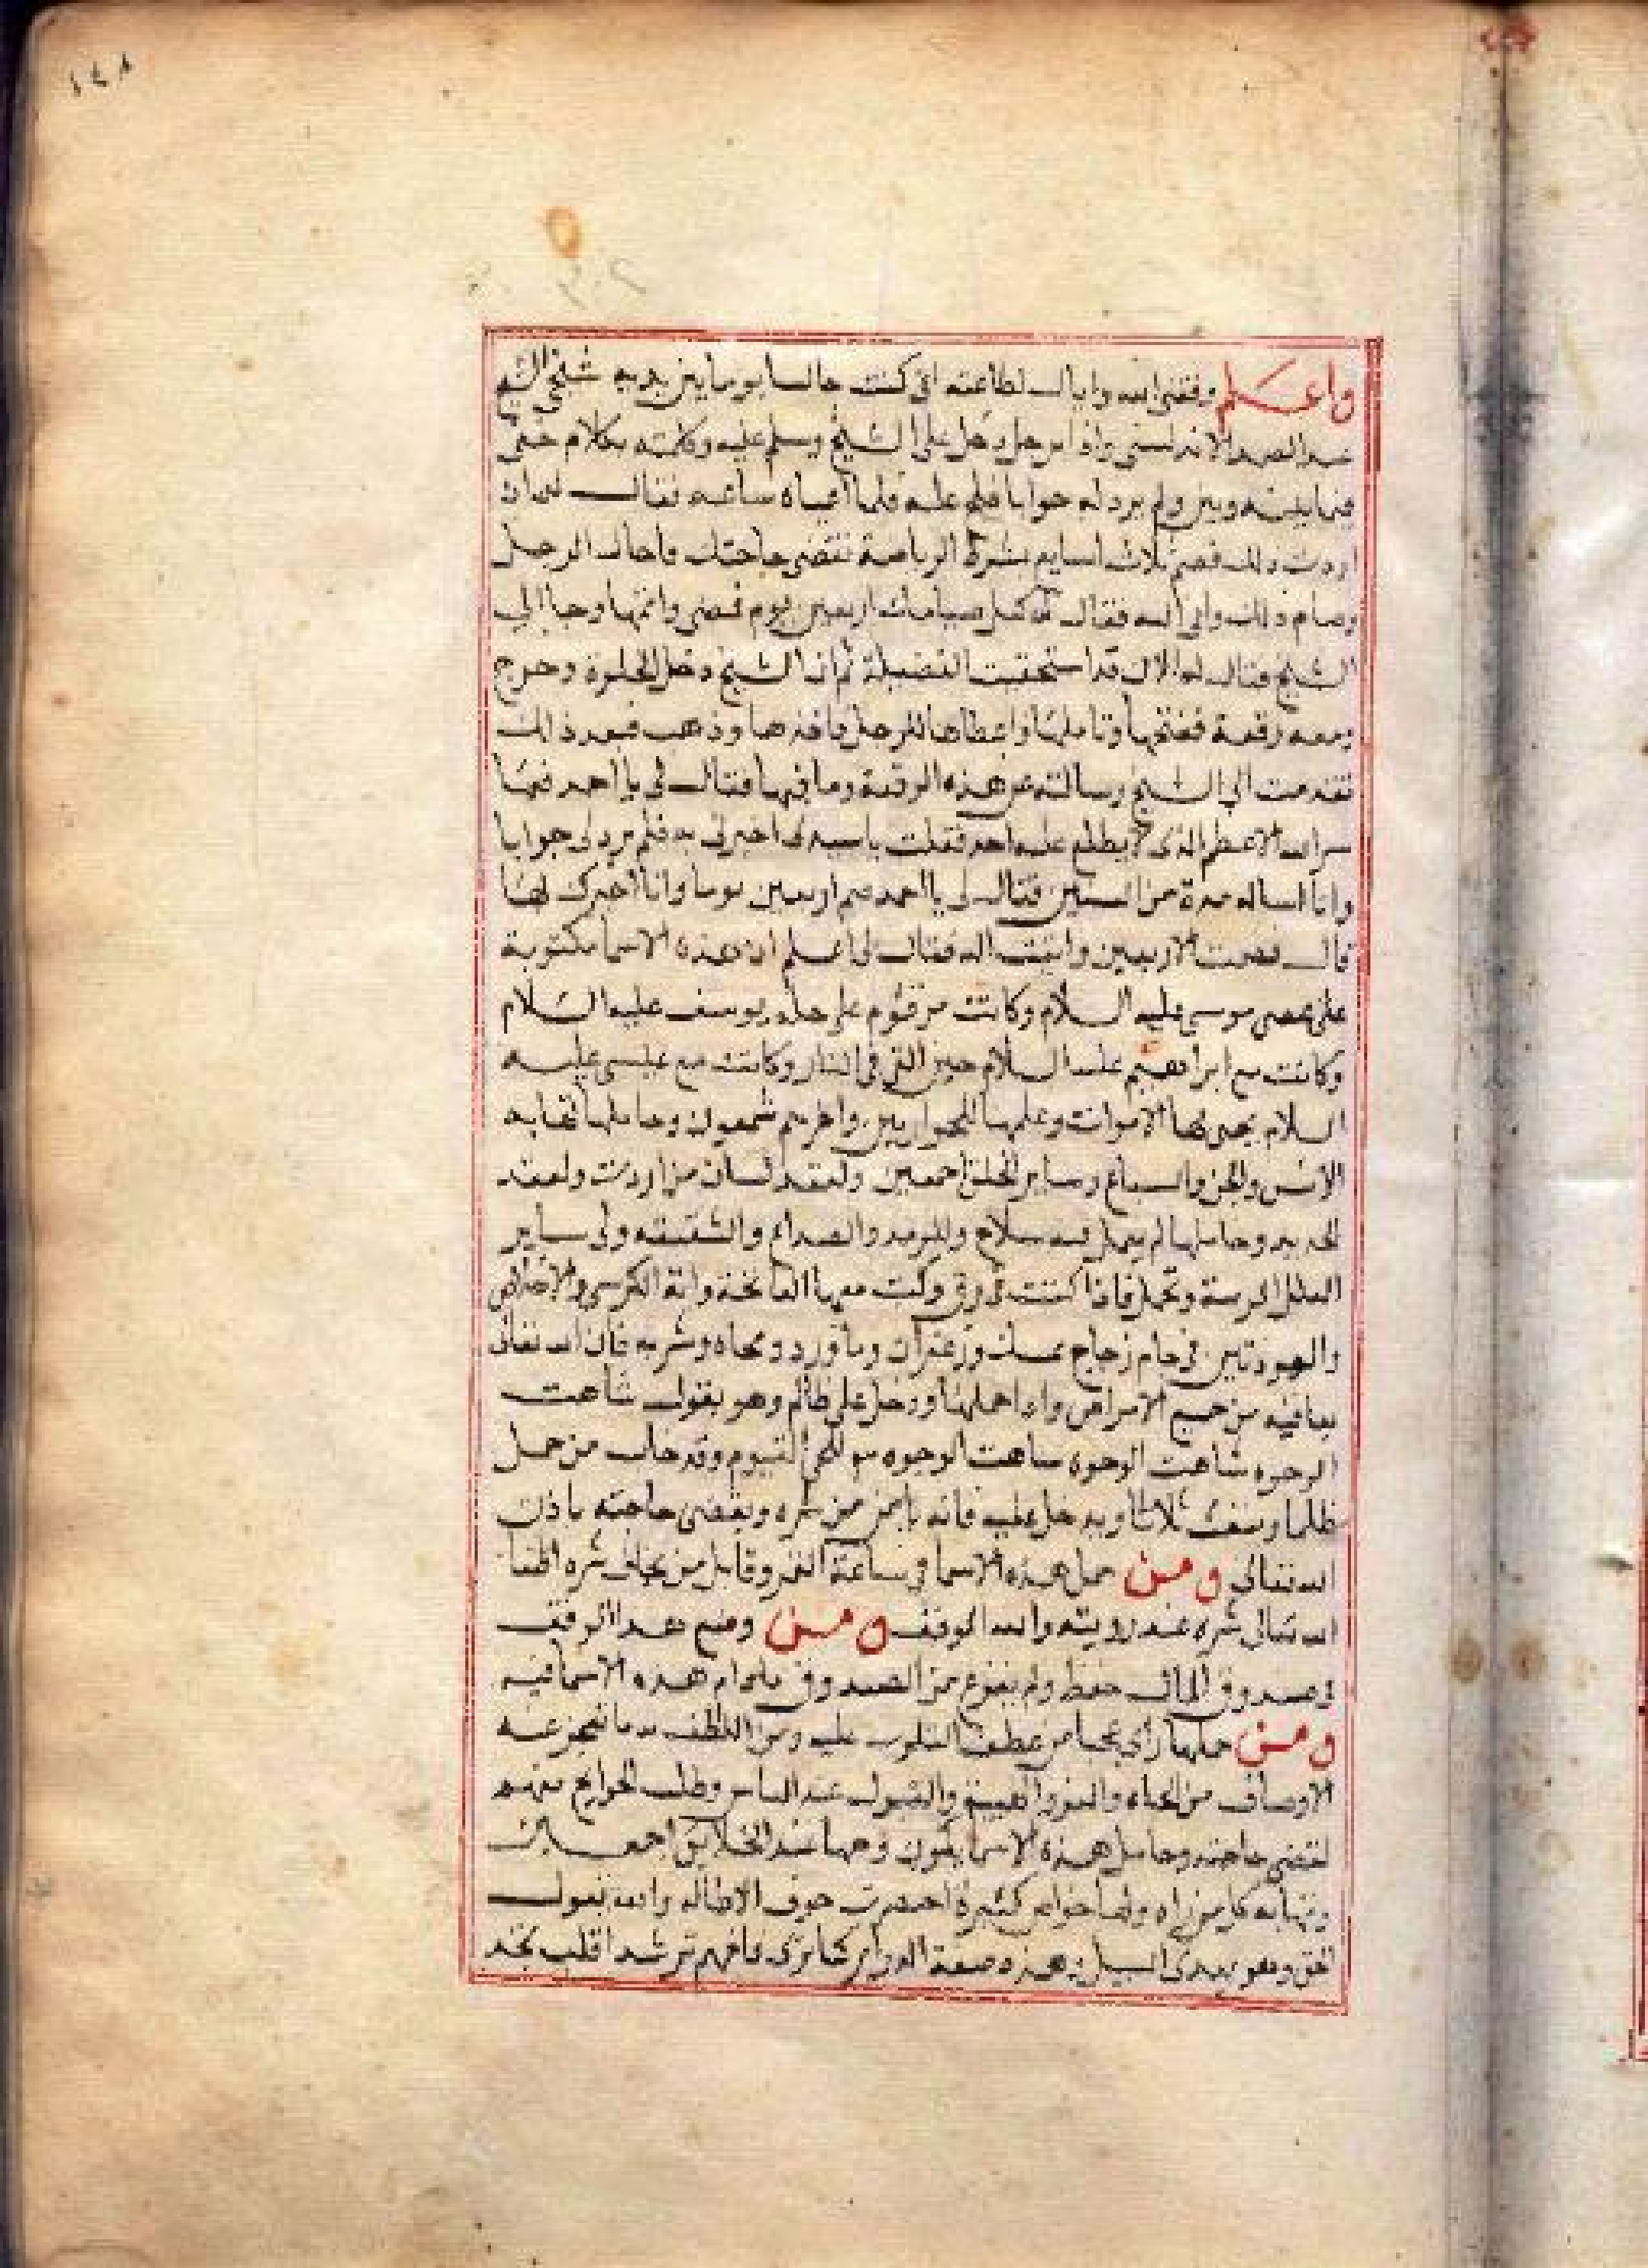 ١٤٨
واعلم وفقني الله واياك لطاعته اني كنت جالسا يوما بين يديه شيخي الشيخ
عبد الصمد الاندلسي واذا برجل دخل على الشيخ وسلم عليه وكلمه بكلام خفي
فيما بينه وبين ولم يرد له جوابا فلح عليه فلما اعياه ساعه فقال له ان
اردت ذلك فصم ثلاث اسابيع بشرط الرياضة تقضى حاجتك فاجاب الرجل
وصام ذلك واتى اليه فقال كمل صيامك اربعين يوم فمضى واتمها وجا الي
الشيخ فقال له الان قد استحقيت الفضيلة ثم ان الشيخ دخل الخلوة وخرج
ومعه رقعة ففتحها وتاملها واعطاها للرجل فاخذها وذهب فبعد ذلك
تقدمت الي الشيخ وسالته عن هذه الرقعة وما فيها فقال لي يا احمد فيها
سر الله الاعظم الذي لا يطلع عليه احد فقلت يا سيدي اخبرني به فلم يرد لي جوابا
وانا اساله مدة من السنين فقال لي يا احمد صم اربعين يوما وانا اخبرك بها
قال فصمت الاربعين واتيت اليه فقال لي اعلم ان هذه الاسما مكتوبة
على عصى موسى عليه السلام وكانت مرقوم على حلة يوسف عليه السلام
وكانت مع ابراهيم عليه السلام حين القي في النار وكانت مع عيسى عليه
السلام يحيي بها الاموات وعلمها للحواريين واخرهم شمعون وحاملها تهابه
الانس والجن والسباع وساير الخلق اجمعين ولعقد لسان من اردت ولعقد
الحديد وحاملها لم يعمل فيه سلاح وللرمد والصداع والشقيقه ولى ساير
العلل المزمنة وتحمل فاذا كتبت في ورق وكتبت معها الفاتحة واية الكرسي والاخلاص
والمعوذتين في جام زجاج بمسك وزعفران وماورد ومحاه وشربه فان الله تعالى
يعافيه من جميع الامراض واذا حملها ودخل على ظالم وهو يقول شاهت
الوجوه شاهت الوجوه شاهت الوجوه للحي القيوم وقد خاب من حمل
ظلما وينفث ثلاثا ويدخل عليه فانه يامن من شره ويقضى حاجته باذن
الله تعالى ومن حمل هذه الاسما في ساعة القمر وقابل من يخاف شره اطفا
الله تعالى شره عند رويته والله الموفق ومن وضع هذا الوفق
في صندوق المال حفظ ولم يفرغ من الصندوق مادام هذه الاسما فيه
ومن حملها راى عجبا من عطف القلوب عليه ومن اللطف به ما تعجز عنه
الاوصاف من الجاه والعز والهيبة والقبول عند الناس وطلب الحوايج منهم
لتقضى حاجته وحامل هذه الاسما يكون وجيها عند الخلايق اجمعين
وتهابه كل من راه ولها خواص كثيرة اختصرت خوف الاطاله والله يقول
الحق وهو يهدي السبيل وهذه صفة الدواير كما ترى فافهم ترشد اقلب تجد